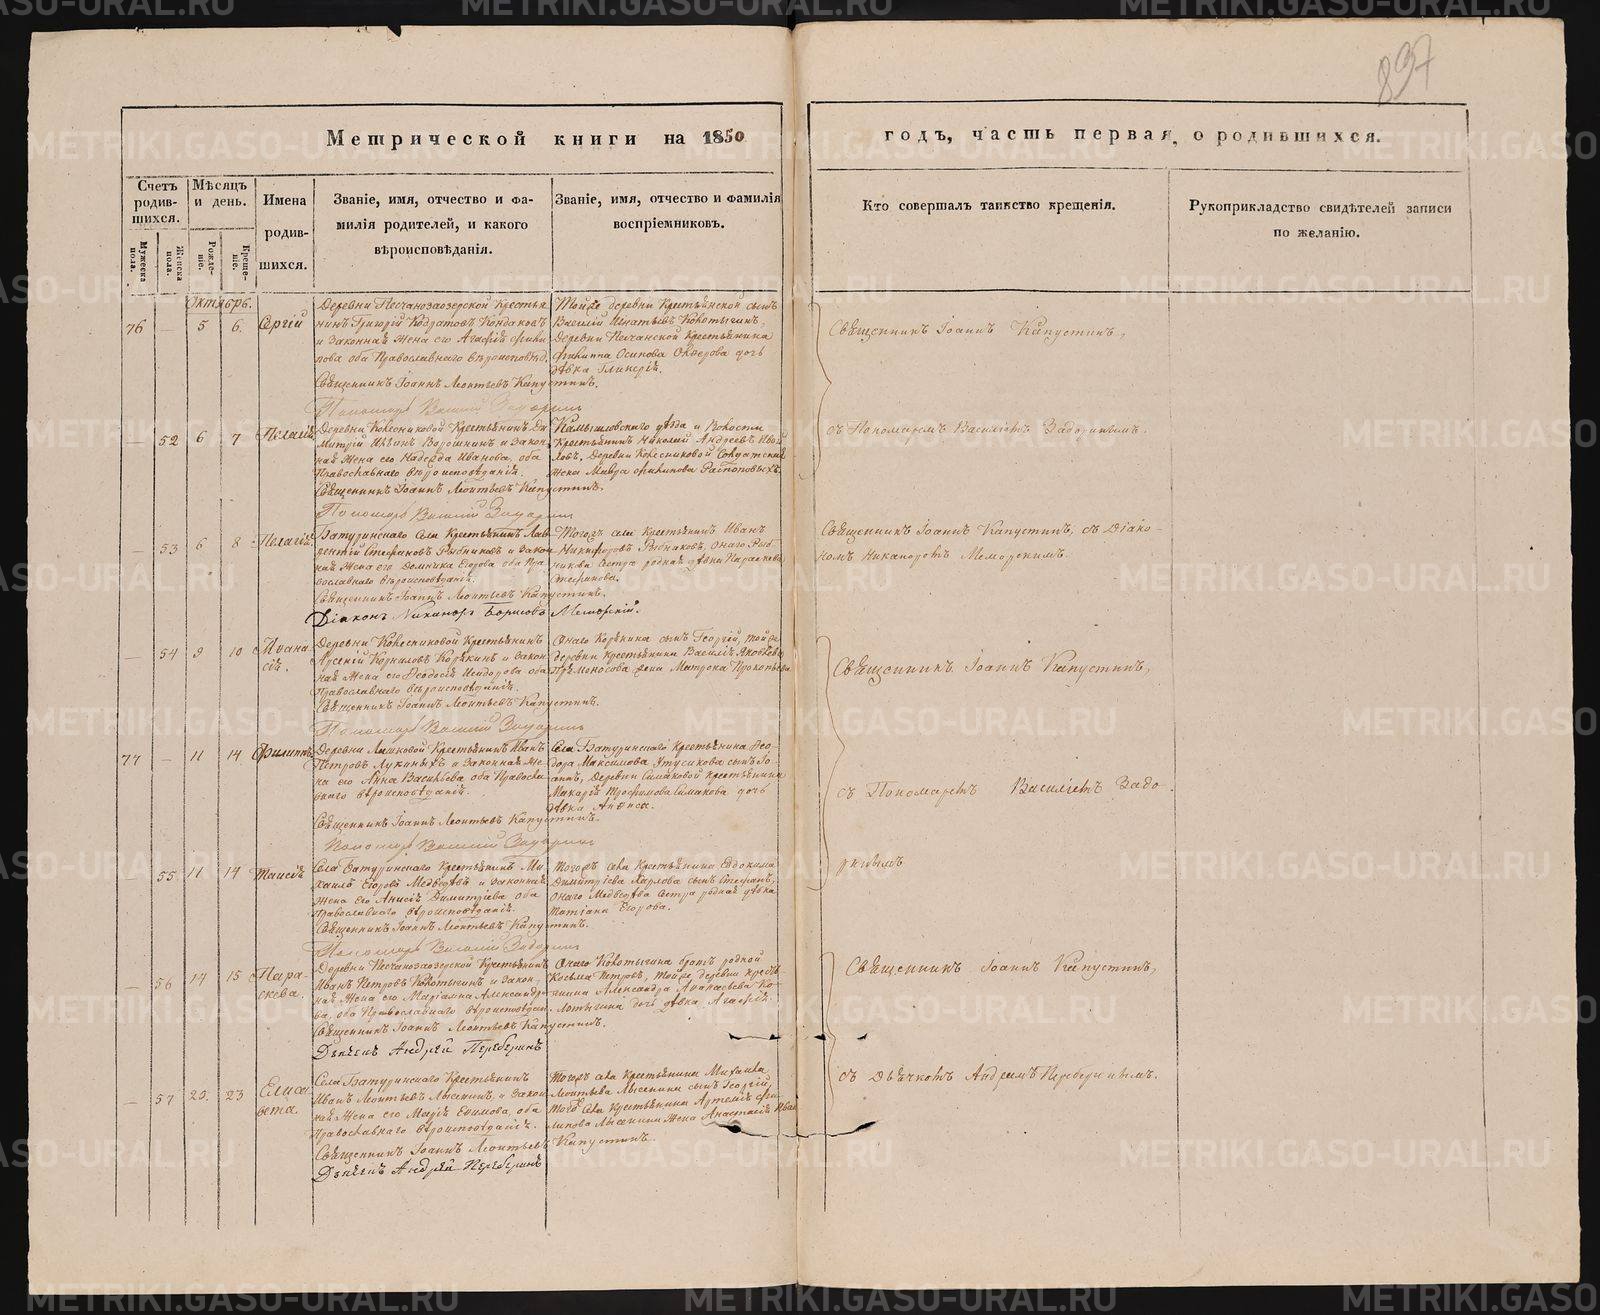 897
Метрической книги на 1850
годъ, часть первая, о родившихся.
Счетъ родив-шихся.
Мужеска пола.
Женска пола.
Мѣсяцъ и день.
Рожде-ніе.
Креще-ніе.
Имена
родив-
шихся.
Званіе, имя, отчество и фа-
милія родителей, и какого
вѣроисповѣданія.
Званіе, имя, отчество и фамилія
воспріемниковъ.
Кто совершалъ таинство крещенія.
Рукоприкладство свидѣтелей записи
по желанію.
Октябрь.
76 — 5 6. Сергій
Деревни Песчаноозерской Крестья
нинъ Григорій Кондаковъ
и Законная жена его Агафія Фили
пова оба Православнаго вѣроисповѣд.
Священникъ Іоаннъ Леонтьевъ Капустинъ.
Пономарь Василій Задоринъ
Тойже деревни Крестьянской сынъ
Василій Игнатьевъ Колотыгинъ,
Деревни Песчанской Крестьянина
Филиппа Осипова дочь
дѣвка Гликерія.
Священникъ Іоаннъ Капустинъ,
— 52 6 7 Пелагія
Деревни Колесниковой Крестьянинъ Ди
митрій Ворошнинъ и Закон
ная жена его Надежда Иванова, оба
Православнаго вѣроисповѣданія.
Священникъ Іоаннъ Леонтьевъ Капустинъ.
Пономарь Василій Задоринъ
Камышловскаго уѣзда и Волости
Крестьянинъ Николай Андреевъ
Деревни Колесниковой Солдатская
жена Мавра Филипова
съ Пономаремъ Василіемъ Задоринымъ.
— 53 6 8 Пелагія
Батуринскаго Села Крестьянинъ Лав
рентій Стефановъ Рыбниковъ и Закон
ная жена его Домника Егорова оба Пра
вославнаго вѣроисповѣданія.
Священникъ Іоаннъ Леонтьевъ Капустинъ.
Діаконъ Никаноръ Борисовъ Меморскій.
Тогожъ села Крестьянинъ Иванъ
Никифоровъ Рыбниковъ, Онаго Рыб
никова Сестра родная дѣвка Параскева
Стефанова.
Священникъ Іоаннъ Капустинъ, съ Діако-
номъ Никаноромъ Меморскимъ.
— 54 9 10
Деревни Колесниковой Крестьянинъ
Арсеній Корниловъ Корякинъ и Закон
ная жена его Феодосія Исидорова оба
Православнаго вѣроисповѣданія.
Священникъ Іоаннъ Леонтьевъ Капустинъ.
Пономарь Василій Задоринъ
Онаго Корякина сынъ Георгій, Тойже
деревни Крестьянина Василія Яковлева
Прямоносова жена Матрона Прокопьева
Священникъ Іоаннъ Капустинъ,
77 — 11 14 Филиппъ
Деревни Крестьянинъ Иванъ
Петровъ Лукиныхъ и Законная же
на его Анна Васильева оба Правосла
внаго вѣроисповѣданія.
Священникъ Іоаннъ Леонтьевъ Капустинъ.
Пономарь Василій Задоринъ
Села Батуринскаго Крестьянина Ѳео
дора Максимова Утусикова сынъ Іо
аннъ, Деревни Симаковой крестьянина
Макарія Трофимова Симакова дочь
дѣвка Анфиса.
съ Пономаремъ Василіемъ Задо-
ринымъ
— 55 11 14 Таисія
Села Батуринскаго Крестьянинъ Ми
хаилъ Егоровъ Медведевъ и Законная
жена его Анисія Димитріева оба
Православнаго вѣроисповѣданія.
Священникъ Іоаннъ Леонтьевъ Капустинъ.
Пономарь Василій Задоринъ
Тогожъ села Крестьянина Евдокима
Димитріева Карлова сынъ Стефанъ,
Онаго Медведева сестра родная дѣвка
Татіана Егорова.
— 56 14 15 Пара-
скева.
Деревни Песчаноозерской Крестьянинъ
Иванъ Петровъ Колотыгинъ и Закон
ная жена его Маріамна Александро
ва, оба Православнаго вѣроисповѣдан.
Священникъ Іоаннъ Леонтьевъ Капустинъ.
Дьячекъ Андрей Переберинъ
Онаго Колотыгина братъ родной
Косьма Петровъ, Тойже деревни кресть-
янина Александра Анапасьева Ко
лотыгина дочь дѣвка Агафія.
Священникъ Іоаннъ Капустинъ,
— 57 20. 23 Елиса
вета.
Села Батуринскаго Крестьянинъ
Иванъ Леонтьевъ Лысенинъ, и Закон
ная жена его Марія Ефимова, оба
Православнаго вѣроисповѣданія.
Священникъ Іоаннъ Леонтьевъ Капустинъ.
Дьячекъ Андрей Переберинъ
Тогожъ села Крестьянина Михаила
Леонтьева Лысенина сынъ Георгій,
Того села Крестьянина Артемія Фи
липова Лысенина жена Анастасія
съ Дьячкомъ Андреемъ Переберинымъ.
METRIKI.GASO-URAL.RU